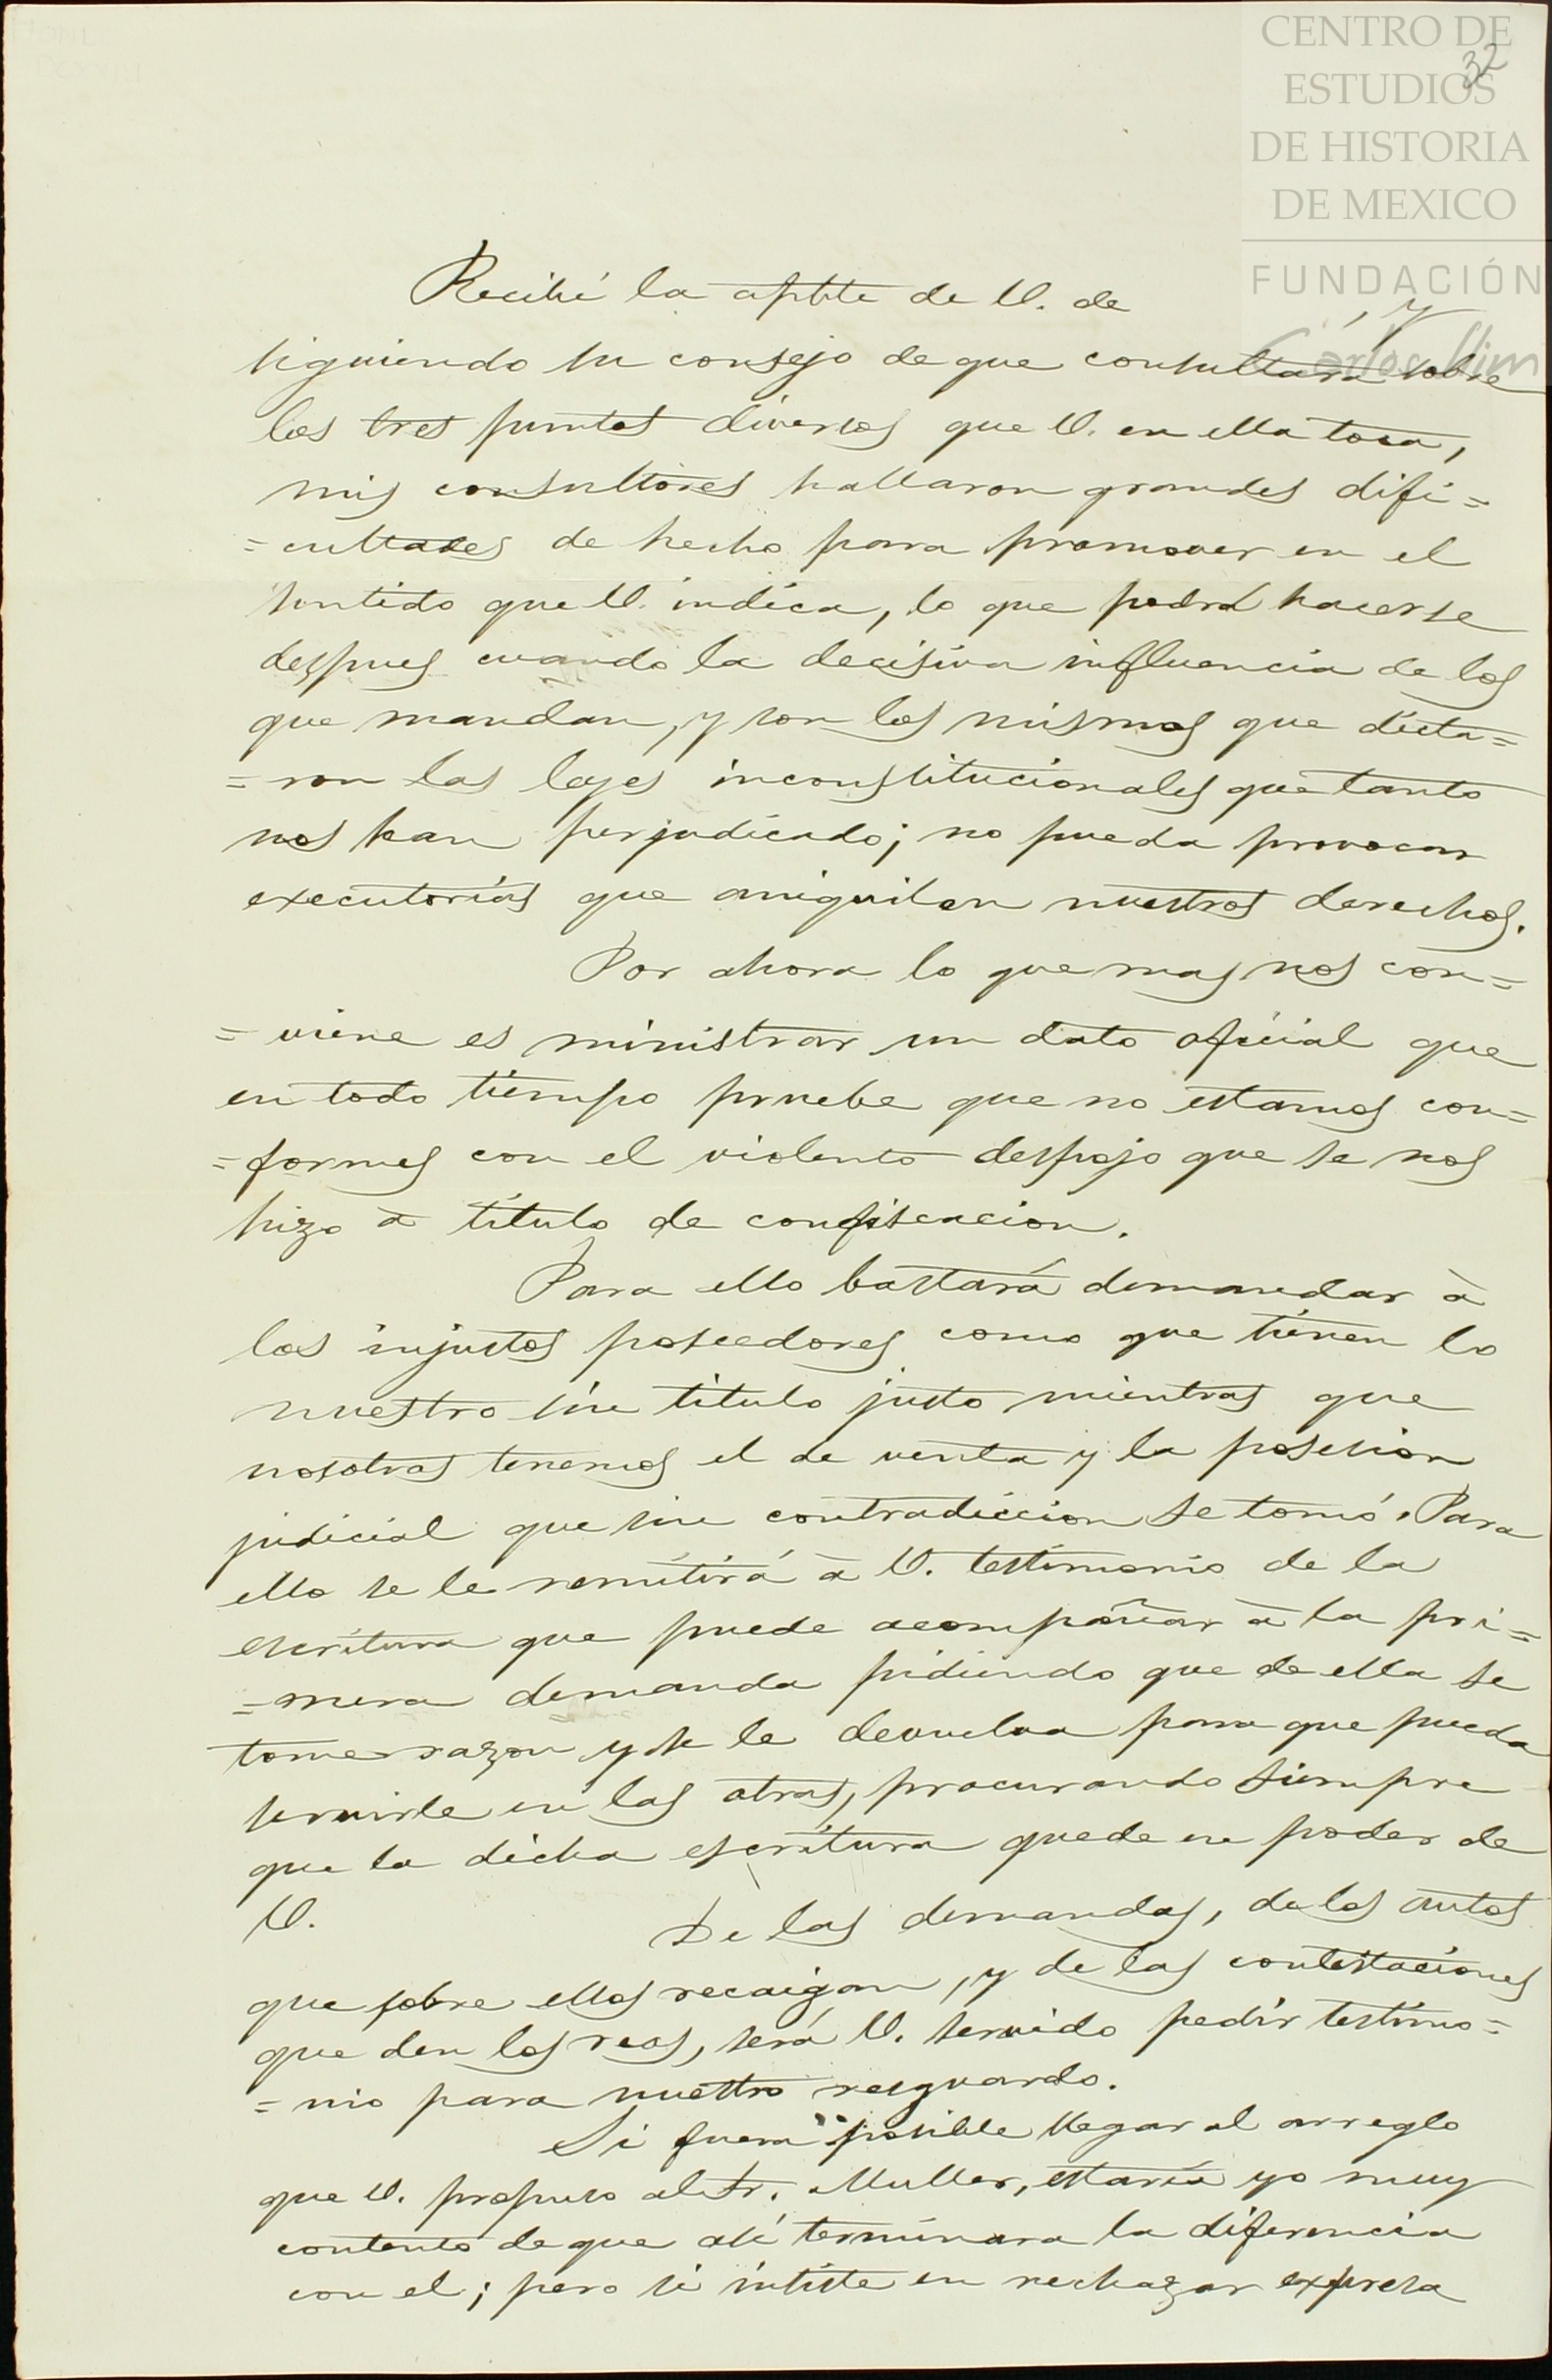 CENTRO DE
ESTUDIOS
DE HISTORIA
DE MEXICO
FUNDACIÓN
Carlos Slim
32
Recibí la aptte de U. de , y
siguiendo su consejo de que consultara sobre
los tres puntos diversos que U. en ella toca,
mis consultores hallaron grandes difi=
=cultades de hecho para promover en el
sentido que U. indica, lo que podrá hacerse
despues cuando la decisiva influencia de los
que mandan, y son los mismos que dicta=
=ron las leyes inconstitucionales que tanto
nos han perjudicado; no pueda provocar
executorias que aniquilen nuestros derechos.
Por ahora lo que mas nos con=
=viene es ministrar un dato oficial que
en todo tiempo pruebe que no estamos con=
=formes con el violento despojo que se nos
hizo à titulo de confiscacion.
Para ello bastará demandar à
los injustos poseedores como que tienen lo
nuestro sin titulo justo mientras que
nosotros tenemos el de venta y la posesion
judicial que sin contradiccion se tomó. Para
ello se le remitirá à U. testimonio de la
escritura que puede acompañar à la pri=
=mera demanda pidiendo que de ella se
tome razon y se le devuelva para que pueda
servirle en las otras, procurando siempre
que la dicha escritura quede en poder de
U. De las demandas, de los autos
que sobre ellas recaigan, y de las contestaciones
que den los reos, será U. servido pedir testimo=
=nio para nuestro resguardo.
Si fuera posible llegar al arreglo
que U. propuso al Sr. Muller, estaria yo muy
contento de que asi terminara la diferencia
con el; pero si insiste en rechazar expresa